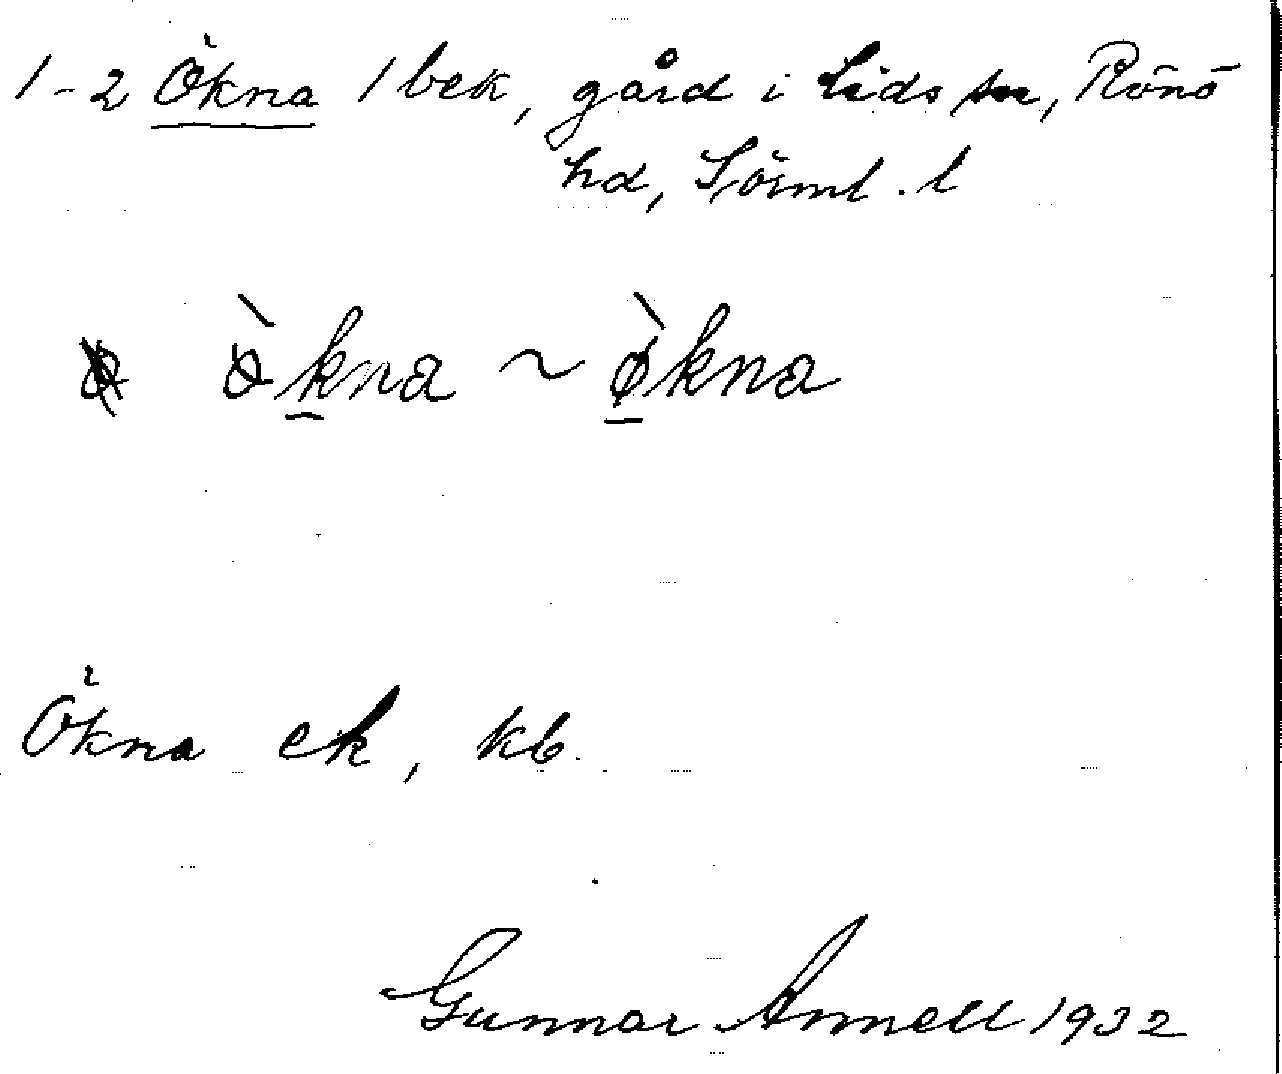 1-2 Ökna 1 bek, gård i Lids sn, Rönö
hd, Sörml. l
ò̀kna ~ ø̀kna
Ökna ek, kb.
Gunnar Annell 1932